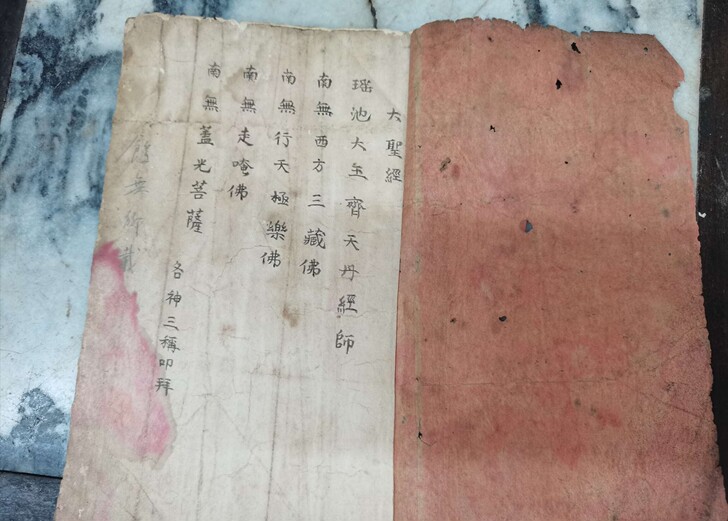 大聖經
瑤池大玊齊天丹經師
南無西方三藏佛
南無行天極樂佛
南無走唵佛
南無蓋光菩薩
各神三稱叩拜